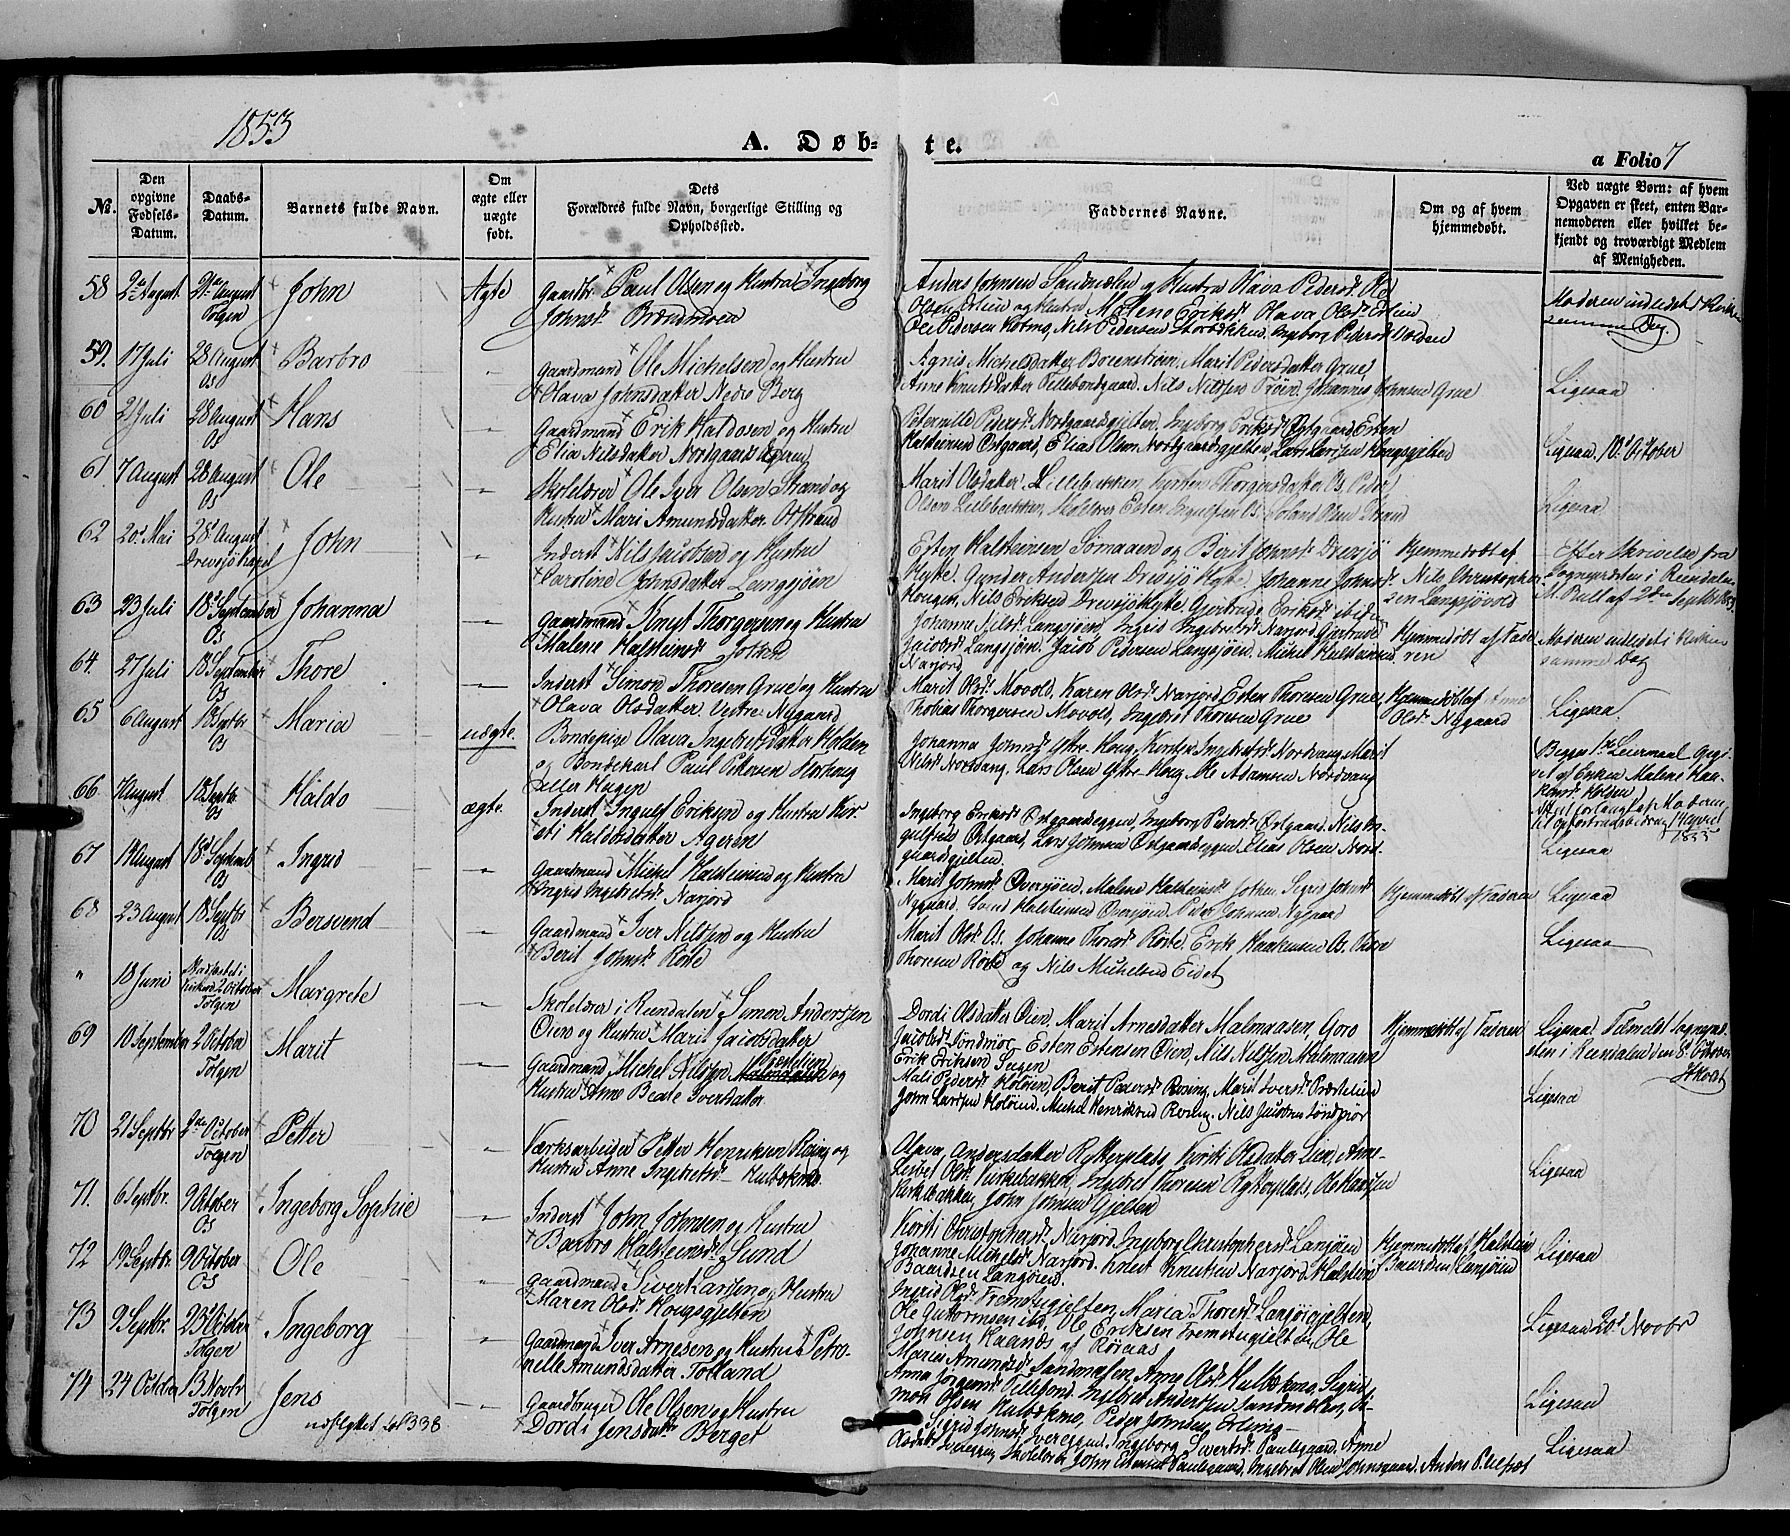 1853
A. Døb-
te.
a Folio 7
No.
Den opgivne Fødsels-Datum.
Daabs-Datum.
Barnets fulde Navn.
Om ægte eller uægte født.
Dets Forældres fulde Navn, borgerlige Stilling og Opholdssted.
Faddernes Navne.
Om og af hvem hjemmedøbt.
Ved uægte Børn: af hvem Opgaven er skeet, enten Barnemoderen eller hvilket bekjendt og troværdigt Medlem af Menigheden.
58 2den August 21de August Tolgen John Ægte
Gaardbr. Paul Olsen og Hustru Ingeborg
Johnsd. Brændmoen
Anders Johnsen Sandmælen og Hustru Olava Pedersd.
Olsen Erlien og Hustru Malene Eriksd. Olava Olsd. Erlien
Ole Pedersen Holmo, Nils Pedersen Storbækken, Ingeborg Pedersd.
Moderen indledet i Kirken
samme Dag
59. 17 Juli 28 August Os Barbro "
Gaardmand Ole Michelsen og Hustru
Olava Johnsdatter Nedre Berg
Agnis Michelsdatter Borenstrøm, Marit Pedersdatter Grue,
Anne Knutsdatter Tillebondgaard, Nils Nilsen Trøen, Johannes Johnsen Grue
Ligesaa
60 2 Juli 28 August Os Hans "
Gaardmand Erik Haldosen og Hustru
Elia Nilsdatter Nordgaards
Peternille Pedersd. Nordgaardsgjelten, Ingeborg Eriksd. Østgaard, Esten
Halsteinsen Østgaard, Elias Olsen Nordgaardsgjelten, Lars Larsen Hougsgjelten
Ligesaa 10de October
61. 7 August 28 August Os Ole "
Skolelærer Ole Iver Olsen Strand og
Hustru Mari Amundsdatter
Marit Olsdatter Lillebækken, Kirsten Thorgersdatter Os, Peder
Olsen Lillebækken, Skolelærer Esten Ingulfsen Os
Ligesaa
62 20de Mai 28de August Drevsjø Kapel John "
Inderst Nils Jacobsen og Hustru
Caroline Johnsdatter Langsjøen
Esten Halsteinsen Sømaaen og Berit Johnsd. Drevsjø
Hytte. Gunder Andersen Drevsjø Hytte, Johanne Johnsd.
Hougen, Nils Eriksen Drevsjø Hytte, Gjertrude Eriksd. ibid.
Hjemmedøbt af
Nils Christophersen Langsjøvold
Efter Skrivelse fra
Sognepræsten i Rendalen
M. Bull af 2den Septbr 1853
63 23 Juli 18de September Os Johanna "
Gaardmand Knut Thorgersen og Hustru
Malene Halsteinsd.
Johanne Nilsd. Langsjøen, Ingrid Ingebretsd. Narjord, Gjertrude
Jacobsd. Langsjøen, Jacob Pedersen Langsjøen, Michel Halsteinsen
Narjord
Hjemmedøbt af Faderen
Moderen indledet i Kirken
samme Dag
64. 27 Juli 18 September Os Thore "
Inderst Simon Thoresen Grue og Hustru
Olava Olsdatter Vestre Nygaard
Marit Olsd. Movold, Karen Olsd. Narjord, Esten Thoresen Grue,
Thobias Thorgersen Movold, Ingebret Thoresen Grue
Hjemmedøbt af Anne
Olsd. Nygaard
Ligesaa.
65 6 August 18 Septbr Os Maria uægte.
Bondepige Olava Ingebretsdatter Holden
og Bondekarl Paul Pettersen
eller Hagen
Johanna Johnsd. Ystre-Houg, Kirsten Ingebretsd. Nordvang, Marit
Nilsd. Nordvang, Lars Olsen Ystre-Houg, Ole Adamsen Nordvang
Begges 1ste Leiermaal. Opgivet af Enken Malene
66 August 18 Septbr. Os Haldo ægte.
Inderst Ingulf Eriksen og Hustru
Haldosdatter Ageren
Ingeborg Eriksd. Østgaardseggen, Ingeborg Pedersd. Østgaard, Nils
Ingulfsen Østgaard, Lars Johnsen Østgaardseggen, Elias Olsen Nordgaardgjelten.
Ligesaa
67 14 August 18de Septemb Os Ingrid "
Gaardmand Michel Halsteinsen og Hustru
Ingrid Ingebretsd. Narjord
Marit Johnsd. Oversjøen, Malene Halsteinsd. Sigrid Johnsd.
Nygaard, Halsteinsen Oversjøen, Peder Johnsen Nygaard
Hjemmedøbt af Faderen
Ligesaa
68 23 August 18 Septbr Os Bersvend "
Gaardmand Iver Nilsen og Hustru
Berit Johnsd. Røste
Marit Olsd. Os, Johanne Thoresd. Røste, Erik Haakensen Os, Thore
Thoresen Røste og Nils Michelsen Eidet
Ligesaa
" 18 Juni Stadfæstet i Kirken 2 October Tolgen Margrete "
Skolelærer i Rendalen Simon Andersen
Øien og Hustru Marit Jacobsdatter
Dordi Olsdatter Øien, Marit Arnesdatter Malmaasen, Goro
Jacobsd. Søndmoe, Esten Estensen Øien, Nils Nilsen Malmaasen
Erik Eriksen
Hjemmedøbt af Faderen
Ligesaa. Tilmeldt Sognepræsten i Rendalen den 8de October
69 10 September 2 October Tolgen Marit "
Gaardmand Michel Nilsen og
Hustru Anne Beate Iversdatter
Mali Pedersd. Holøien, Berit Pedersd. Røsing, Marit Iversd.
John Larsen Holøien, Michel Henriksen Røsing, Nils
Ligesaa
70 21 Septbr 2den October Tolgen Petter "
Værksarbeider Petter Henriksen Røsing og
Hustru Anne Ingebretsd. Kulbækmo
Olava Andersdatter Rytterplads, Kirsti Olsdatter Lien, Anne
Lisbet Olsd. Kirkebakken, Ingebret Thoresen Rytterplads, Ole Hansen
Kirkebakken, John Johnsen Gjelten
Ligesaa
71. 6 Septbr. 9 October Os Ingeborg Sophie "
Inderst John Johnsen og Hustru
Barbro Halsteinsd. Sund
Kirsti Christophersd. Narjord, Ingeborg Christophersd. Langøien
Johanne Michelsd. Narjord, Knut Knutsen Narjord, Halstein
Baardsen Langøien.
Hjemmedøbt af Halstein
Baardsen Langøien
Ligesaa
72 19 Septbr. 9 October Os Ole "
Gaardmand Sivert Larsen og Hustru
Maren Olsd. Hougsgjelten
Ingrid Olsd. Fremstegjelten, Maria Thoresd. Langøigjelten,
Ole Guttormsen ibid. Ole Eriksen Fremstegjelten, Ole
Johnsen Haanes af Røraas
Ligesaa 20de Novbr
73 9 Septbr. 23de October Tolgen Ingeborg "
Gaardmand Iver Arnesen og Hustru Petronelle Amundsdatter
Marie Amundsd. Sandmælen, Anne Olsd. Kulbækmo, Sigrid
Anna Jørgensd. Ingebret Andersen Sandmælen,
Olsen Kulbækmo, Peder Johnsen Erlien
Ligesaa
74 24 October 13 Novbr Tolgen Jens "
udflyttet
Gaardbruger Ole Olsen og Hustru
Dordi Jensdatter Berget
Sigrid Johnsd. Ivereggen, Ingeborg Sivertsd. Paulsgaard, Anne
Olsdatter Ivereggen, Skolelærer John Estensen Paulsgaard, Ingebret Olsen Johnsgaard, Anders
Ligesaa